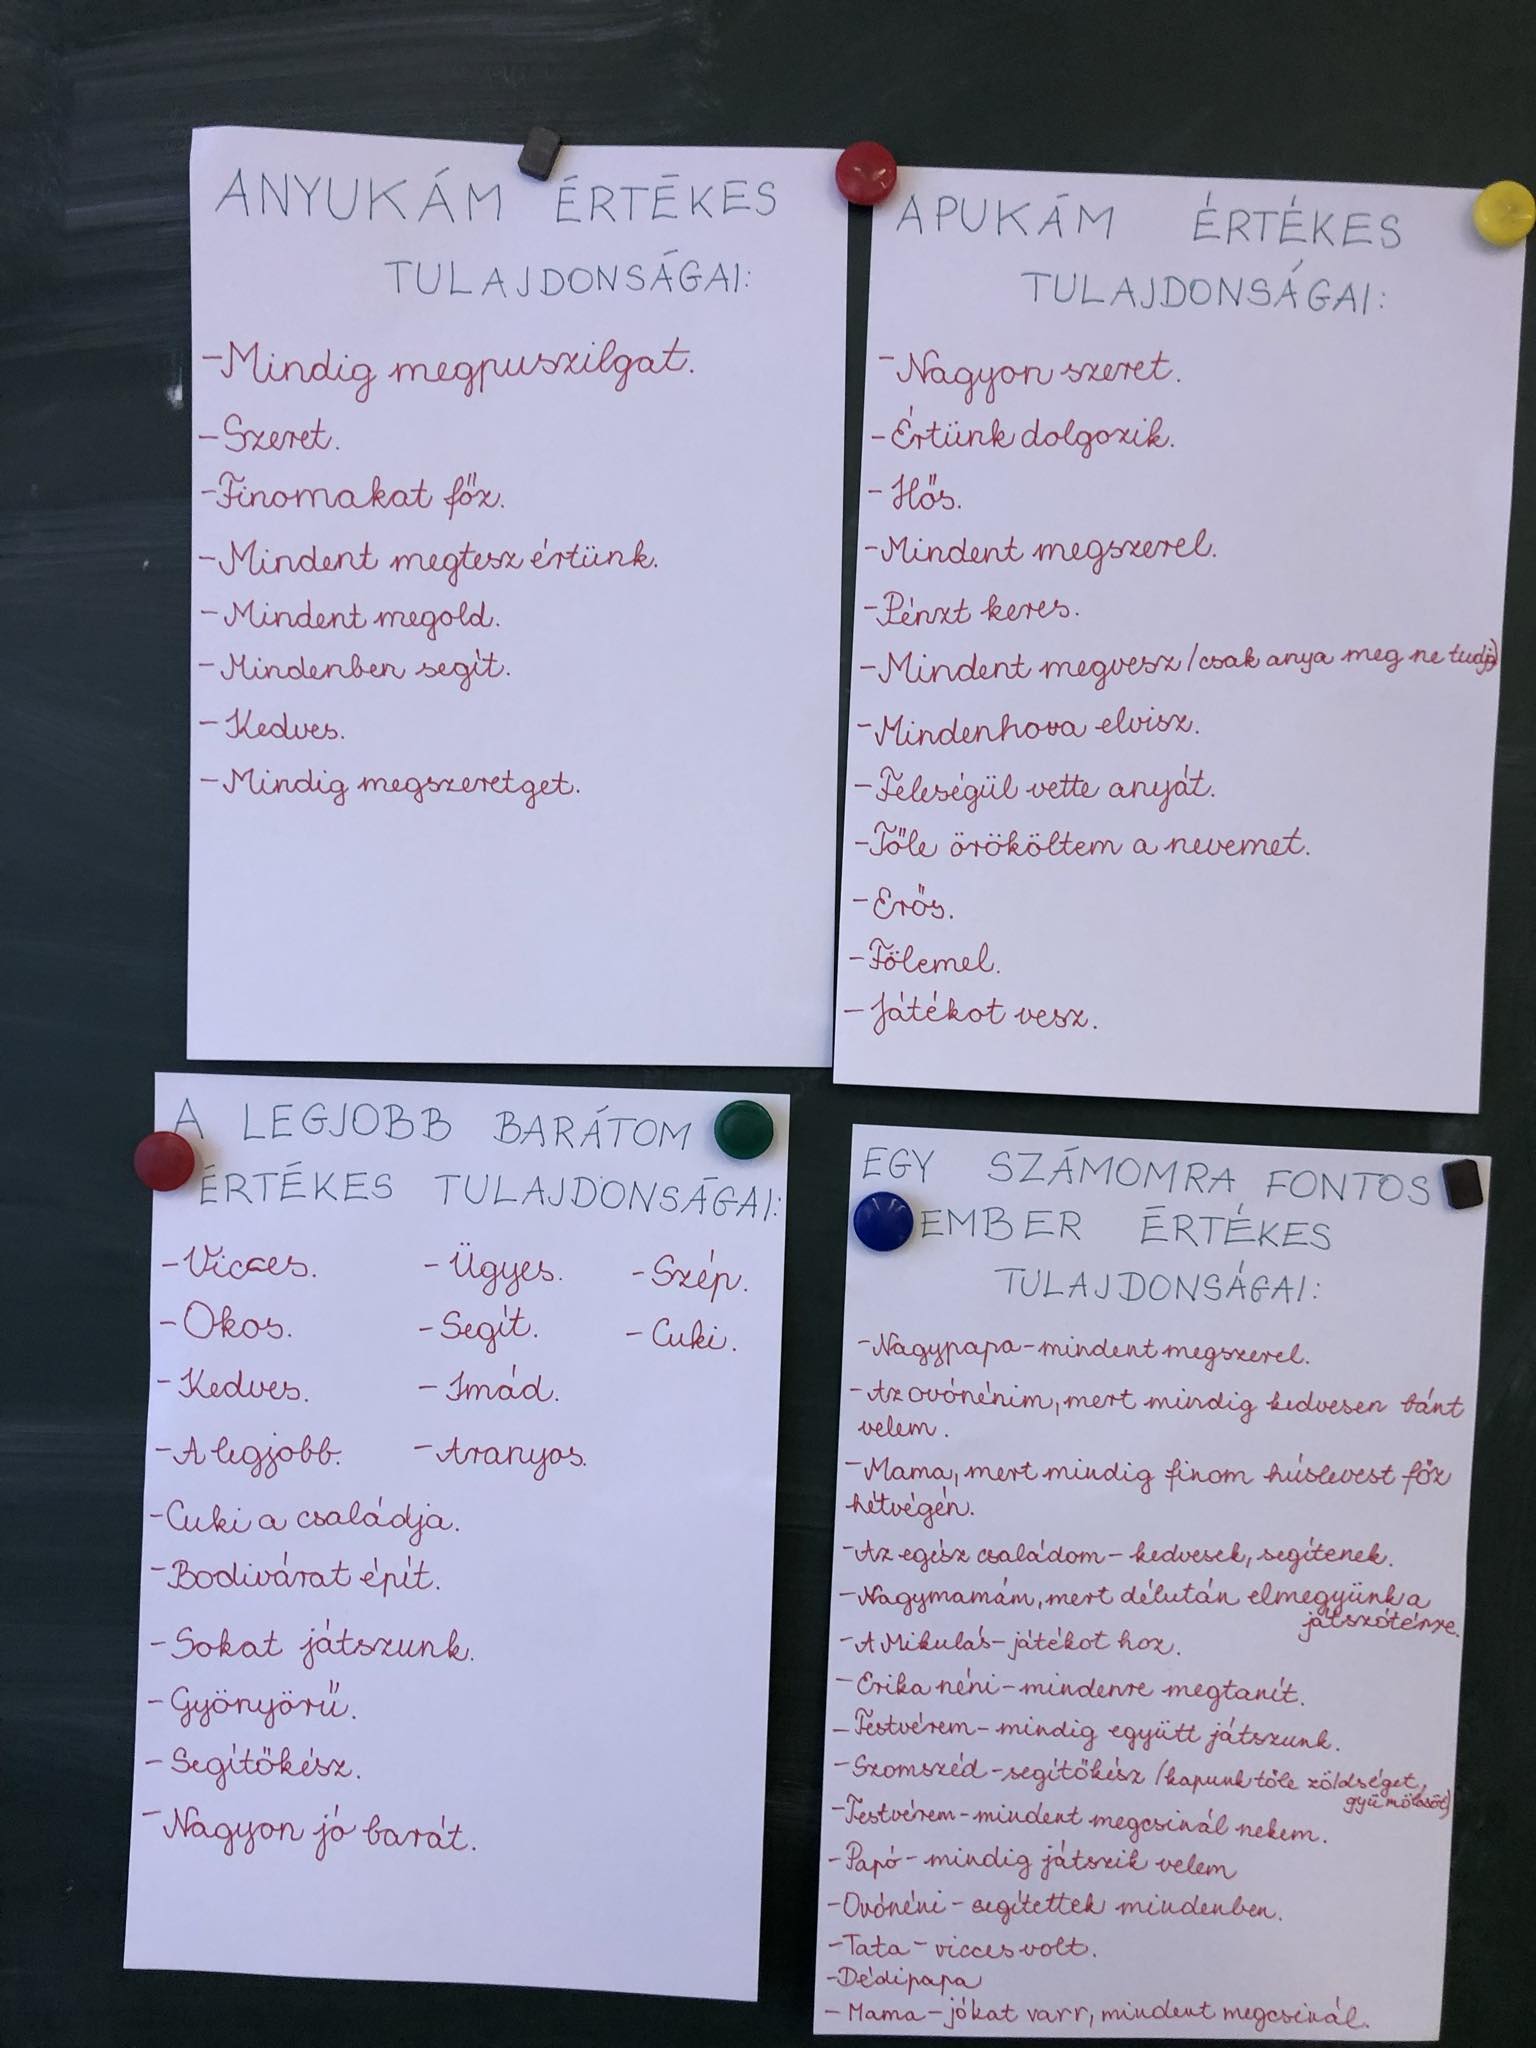 ANYUKÁM ÉRTÉKES
TULAJDONSÁGAI:
-Mindig megpuszilgat.
-Szeret.
-Finomakat főz.
-Mindent megtesz értünk.
-Mindent megold.
-Mindenben segít.
-Kedves.
-Mindig megszeretget.
APUKÁM ÉRTÉKES
TULAJDONSÁGAI:
-Nagyon szeret.
-Értünk dolgozik.
-Hős.
-Mindent megszerel.
-Pénzt keres.
-Mindent megvesz /csak anya meg ne tudja)
-Mindenhova elvisz.
-Feleségül vette anyát.
-Tőle örököltem a nevemet.
-Erős.
-Fölemel.
-Játékot vesz.
A LEGJOBB BARÁTOM
ÉRTÉKES TULAJDONSÁGAI:
-Vicces. -Ügyes. -Szép.
-Okos. -Segít. -Cuki.
-Kedves. -Imád.
-A legjobb. -Aranyos.
-Cuki a családja.
-Bodivárat épít.
-Sokat játszunk.
-Gyönyörű.
-Segítőkész.
-Nagyon jó barát.
EGY SZÁMOMRA FONTOS
EMBER ÉRTÉKES
TULAJDONSÁGAI:
-Nagypapa-mindent megszerel.
-Az ovónénim, mert mindig kedvesen bánt
velem.
-Mama, mert mindig finom húslevest főz
hétvégén.
-Az egész családom-kedvesek, segítenek.
-Nagymamám, mert délután elmegyünk a
játszótérre.
-A Mikulás-játékot hoz.
-Erika néni-mindenre megtanít.
-Testvérem-mindig együtt játszunk.
-Szomszéd-segítőkész /kapunk tőle zöldséget,
gyümölcsöt)
-Testvérem-mindent megcsinál nekem.
-Papó-mindig játszik velem
-Ovónéni-segítettek mindenben.
-Tata-vicces volt.
-Dédipapa
-Mama-jókat varr, mindent megcsinál.